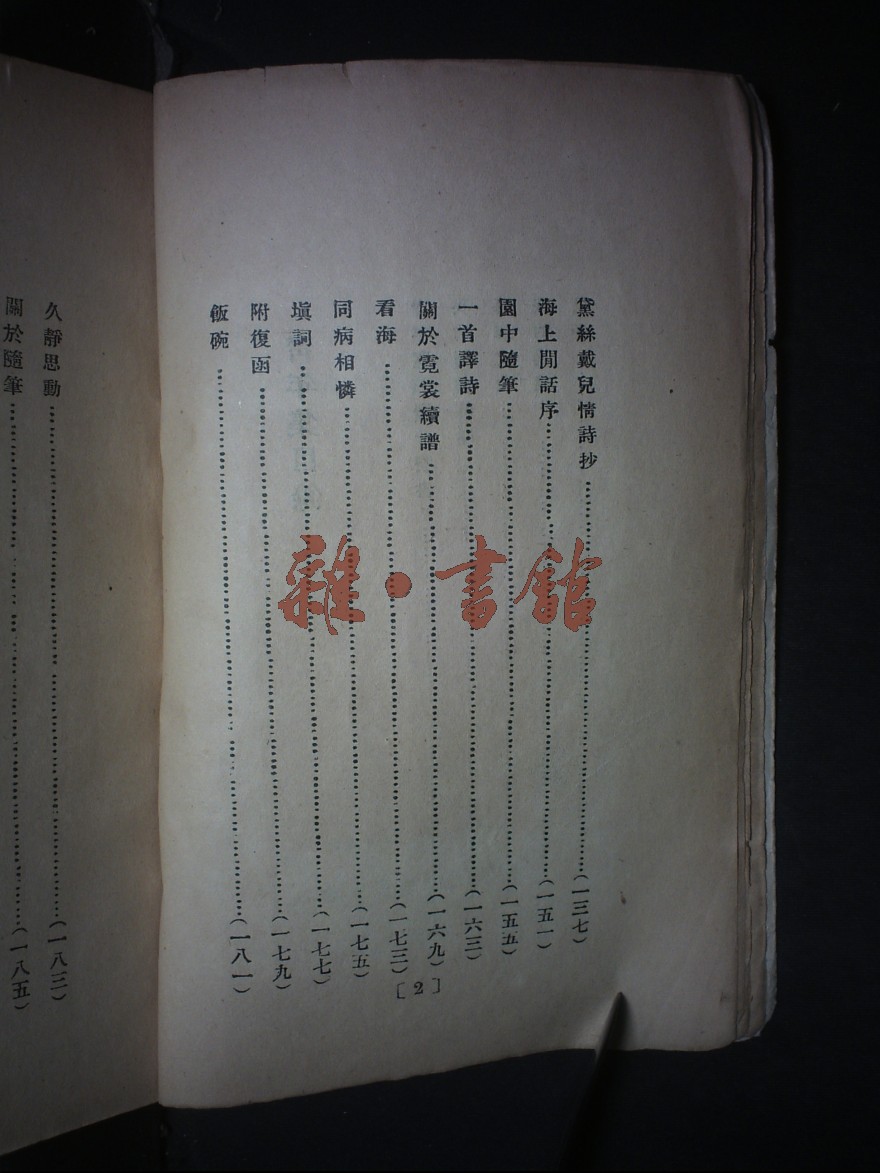 黛絲戴兒情詩抄……(一三七)
海上閒話序……(一五一)
園中隨筆……(一五五)
一首譯詩……(一六三)
關於霓裳續譜……(一六九)
看海……(一七三)
同病相憐……(一七五)
塡詞……(一七七)
附復函……(一七九)
飯碗……(一八一)
〔2〕
久靜思動……(一八三)
關於隨筆……(一八五)
雜·書館